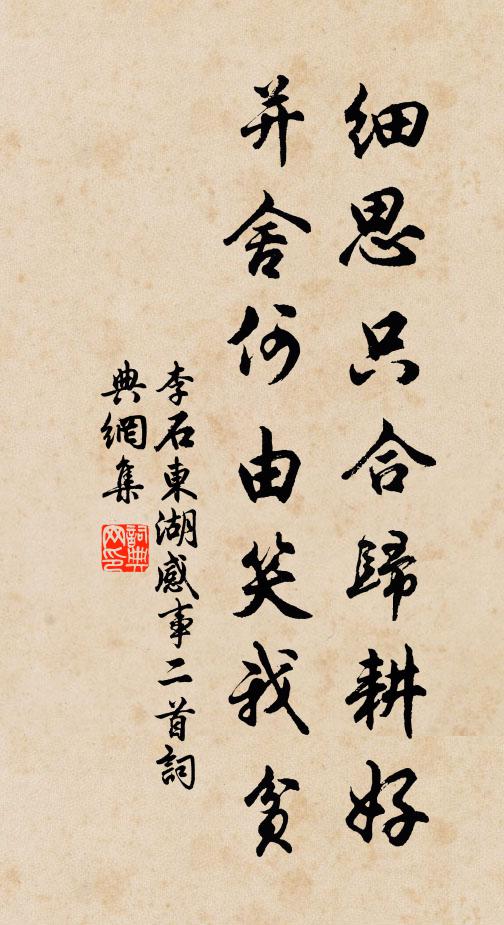 細思只合歸耕好
并舍何由笑我貧
李石東湖感事二首詞
典網集
詞典
网印